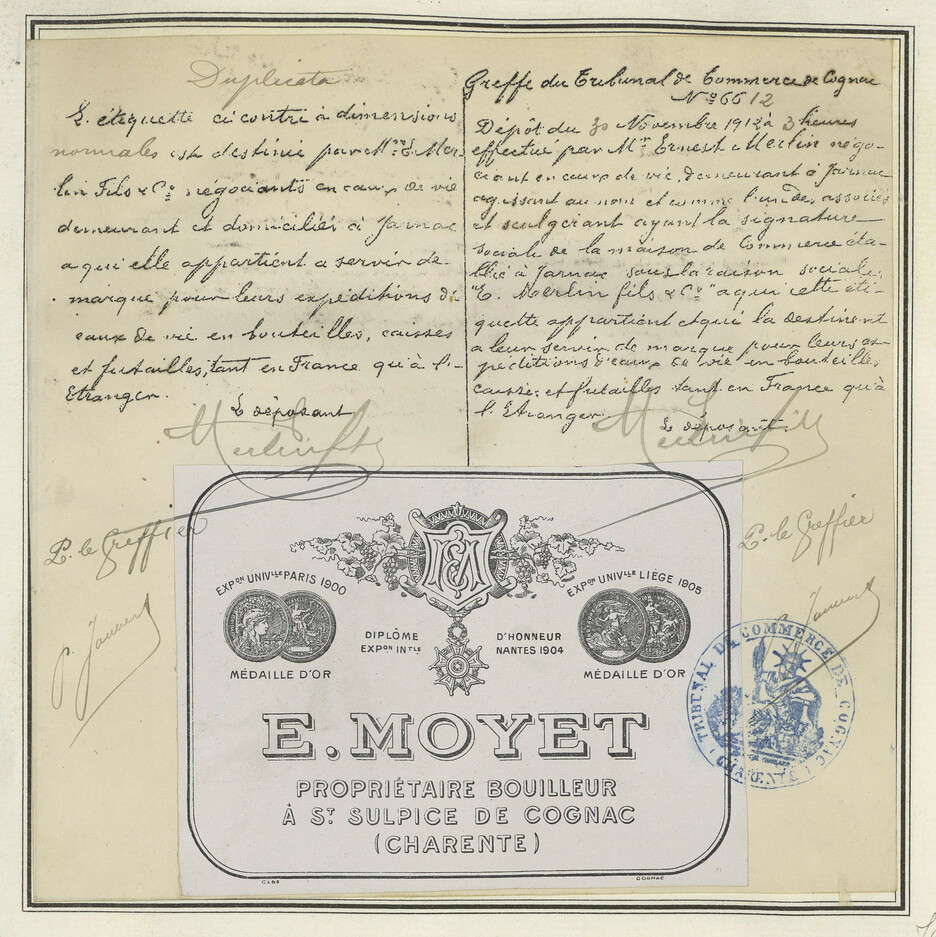 Duplicata
L'étiquette ci contre à dimensions
normales est destinée par MM. E. Mer-
lin Fils & Co négociants en eaux de vie
demeurant et domiciliés à Jarnac
a qui elle appartient a servir de
marque pour leurs expéditions d'
eaux de vie en bouteilles, caisses
et futailles, tant en France qu'à l'-
Etranger.
Le déposant
Merlin fils
P. le Greffier
Greffe du Tribunal de Commerce de Cognac
No 6612
Dépôt du 30 Novembre 1912 à 3 heures
effectué par Mr Ernest Merlin négo-
ciant en eaux de vie, demeurant à Jarnac
agissant au nom et comme l'un des associés
et seul gérant ayant la signature
sociale de la maison de Commerce éta-
blie à Jarnac sous la raison sociale.
"E. Merlin fils & Co" a qui cette éti-
quette appartient et qui la destinent
a leur servir de marque pour leurs ex-
péditions d'eaux de vie en bouteilles
caisses et futailles tant en France qu'à
l'Etranger.
Le déposant.
Merlin fils
P. le Greffier
EXPON UNIVLLE PARIS 1900
MÉDAILLE D'OR
DIPLÔME D'HONNEUR
EXPON INTLE NANTES 1904
EXPON UNIVLLE LIÈGE 1905
MÉDAILLE D'OR
E. MOYET
PROPRIÉTAIRE BOUILLEUR
À ST SULPICE DE COGNAC
(CHARENTE)
COGNAC
TRIBUNAL DE COMMERCE DE COGNAC
CHARENTE